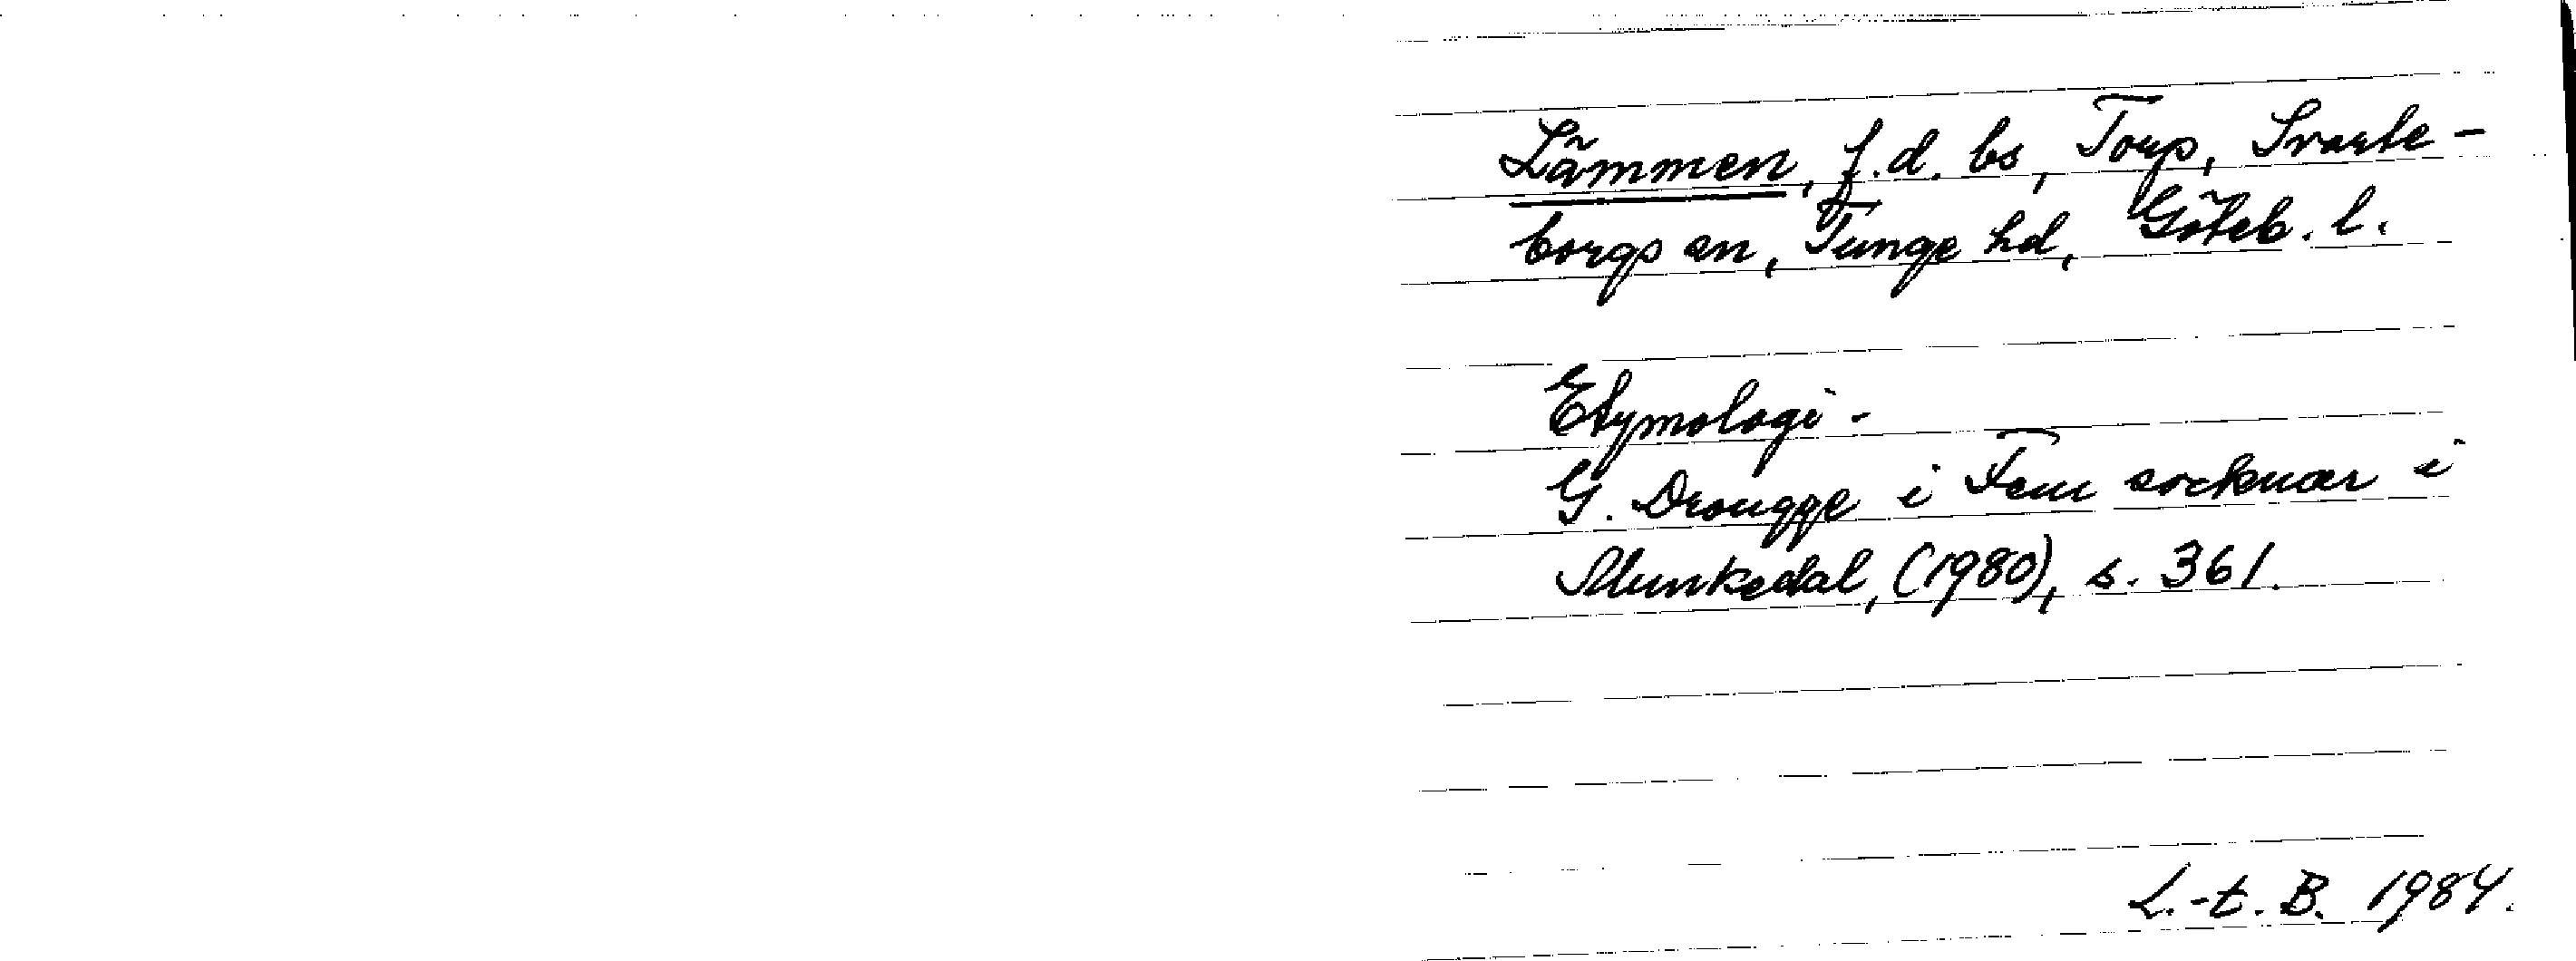 Lämmen, f.d. bs, Torp, Svarte-
borgs sn, Tunge hd, Göteb. l.
Etymologi -
G. Drougge i Fem socknar i
Munkedal, (1980), s. 361.
L.-t. B. 1984.